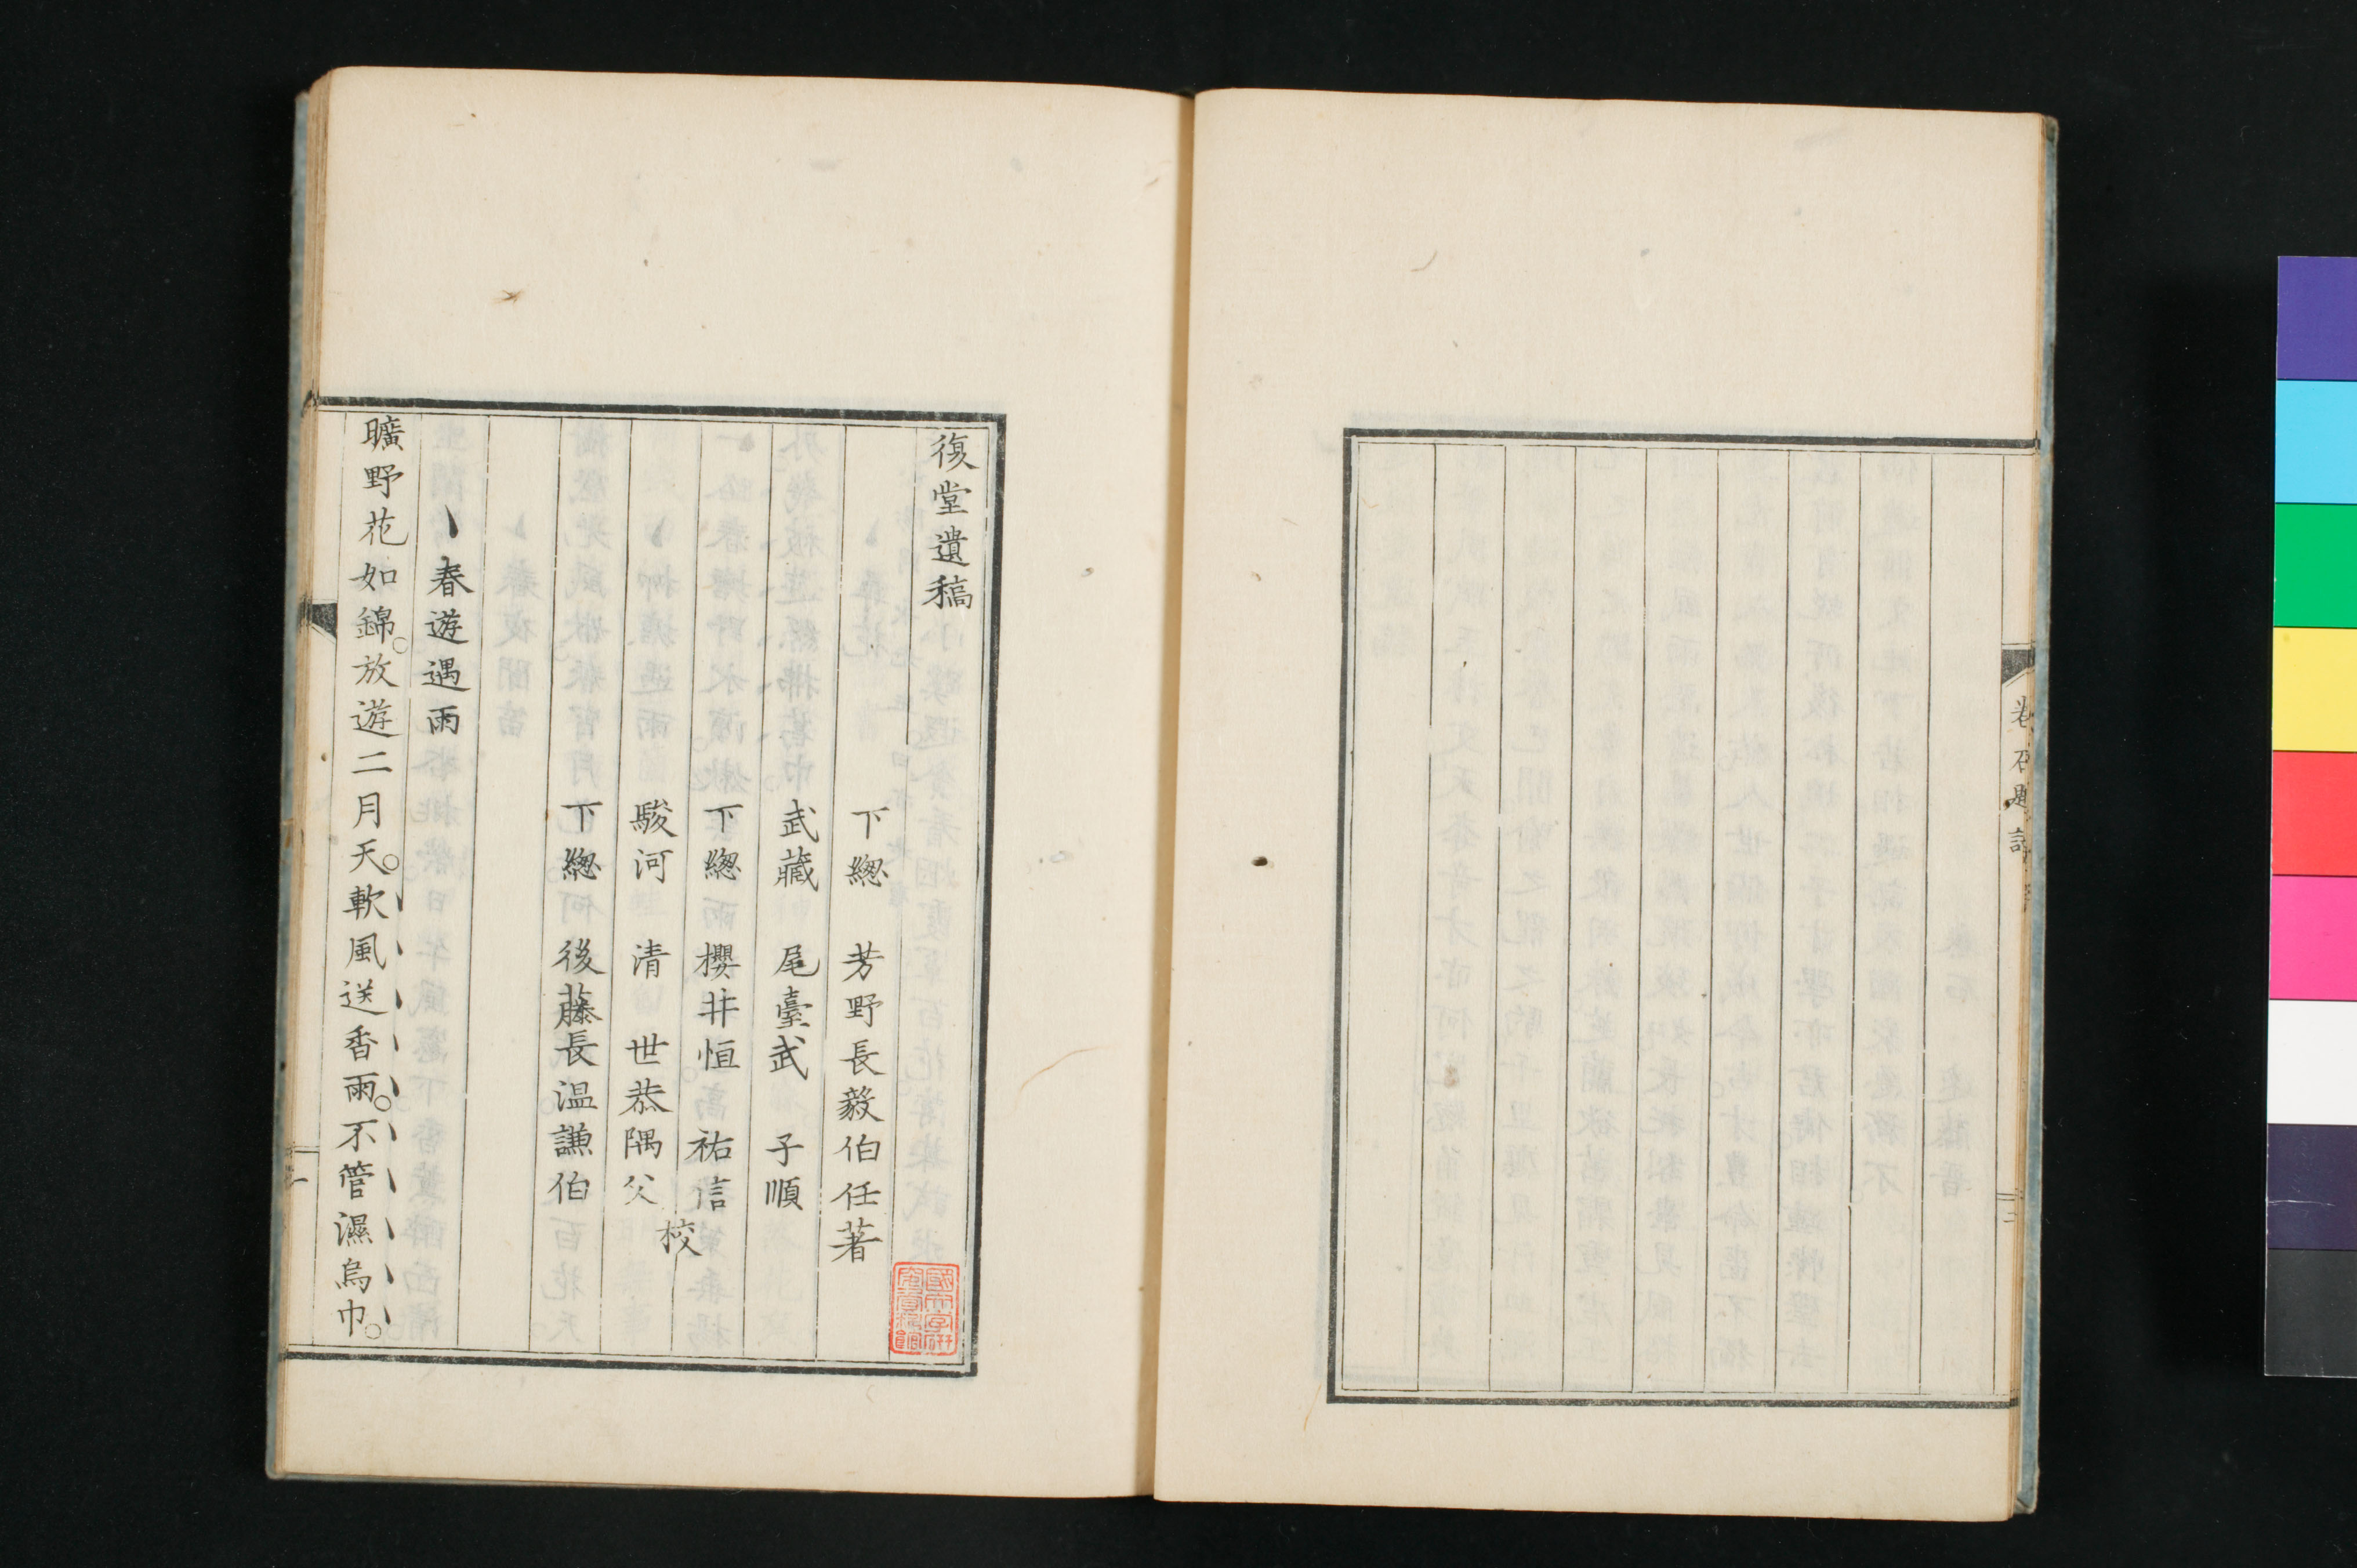 卷石題詞
復堂遺稿
下總　芳野長毅伯任著
武藏　尾臺武　子順
下總　櫻井恒　祐信
駿河　清　世恭隅父
校
下總　後藤長温謙伯
春遊遇雨
曠野花如錦。放遊二月天。軟風送香雨。不管濕烏巾。